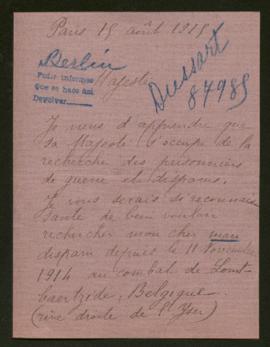 Paris 19 août 1915
Berlin
Pedir informes
que se hace así
Devolver
Majesté
Dussart
84985
Je viens d'apprendre que
sa Majesté s'occupe de la
recherche des prisonniers
de guerre et disparus.
Je vous serais si reconnais
sante de bien vouloir
rechercher mon cher mari
disparu depuis le 11 Novembre
1914 au combat de Lomb
baertzide, Belgique
(rive droite de l'Yser)